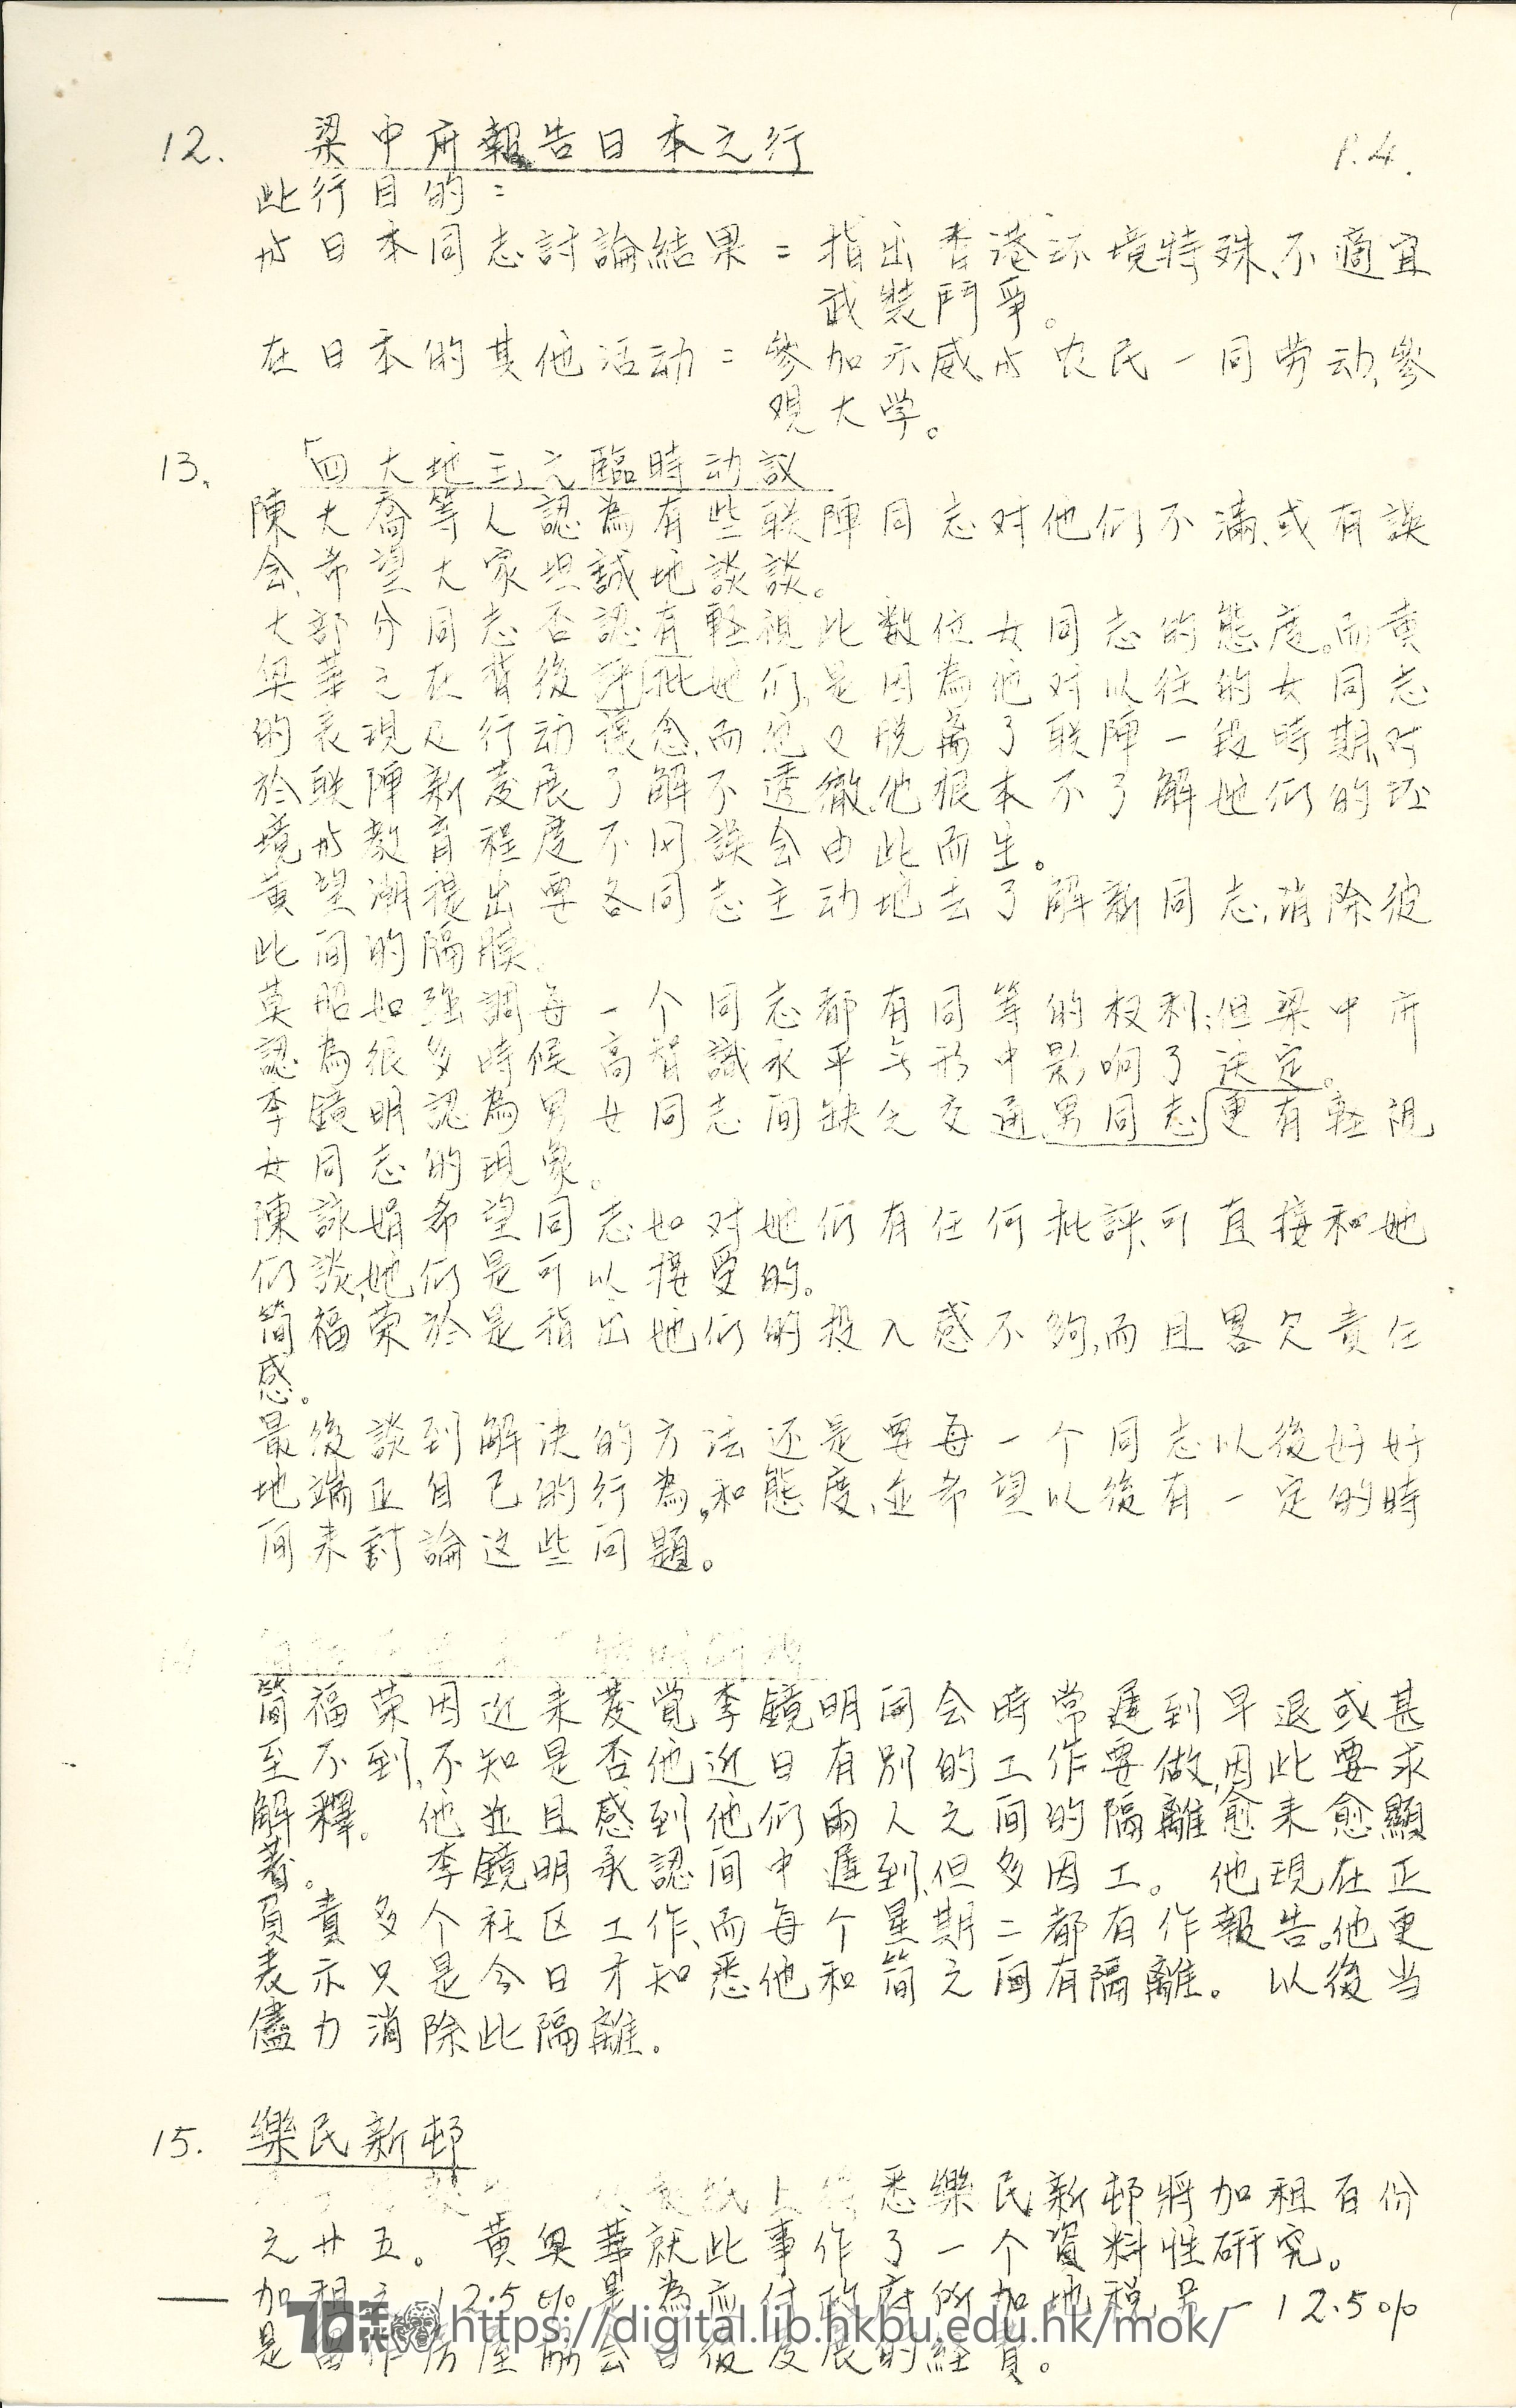 12. 梁中府報告日本之行
P.4.
此行目的:
与日本同志討論結果:指出香港环境特殊、不適宜
武裝鬥爭。
在日本的其他活动:參加示威、与农民一同劳动、參
观大学。
13. 「四大地主之臨時动議
陳大喬等人認為有些联陣同志对他们不滿、或有誤
会、希望大家坦誠地談談。
大部分同志否認有輕視此数位女同志的態度。而黄
奥華之在背後評批她们、是因為他对以往的女同志
的表現及行动懷念、而他又脱离了联陣一段時期、对
於联陣新发展了解不透徹、他根本不了解她们的环
境与教育程度不同、誤会由此而生。
黄望潮提出要各同志主动地去了解新同志、消除彼
此间的隔膜。
莫昭如強調每一个同志都有同等的权利;但梁中府
認為很多時候高智識水平无形中影响了决定。
李鏡明認為男女同志间缺乏交通、男同志更有輕視
女同志的現象。
陳詠娟希望同志如对她们有任何批評、可直接和她
们談、她们是可以接受的。
简福荣於是指出她们的投入感不夠、而且畧欠責任
感。
最後談到解决的方法还是要每一个同志以後好好
地端正自己的行為。和態度、並希望以後有一定的時
间来討論这些问題。
简福荣因近来发覚李鏡明开会時常遲到早退或甚
至不到、不知是否他近日有别的工作要做、因此要求
解釋。他並且感到他们兩人之间的隔離愈来愈顯
著。 李鏡明承認间中遲到、但多因工。他現在正
負責多个社区工作、而每个星期二都有作報告。他更
表示只是今日才知悉他和简之间有隔離。以後当
儘力消除此隔離。
15. 樂民新邨
紙上 悉樂民新邨將加租百份
之廿五。黄奥華就此事作了一个資料性研究。
加租之12.5%是為应付政府所加地税、另一12.5%
是留作房屋協会日後发展的經費。
70 https://digital.lib.hkbu.edu.hk/mok/